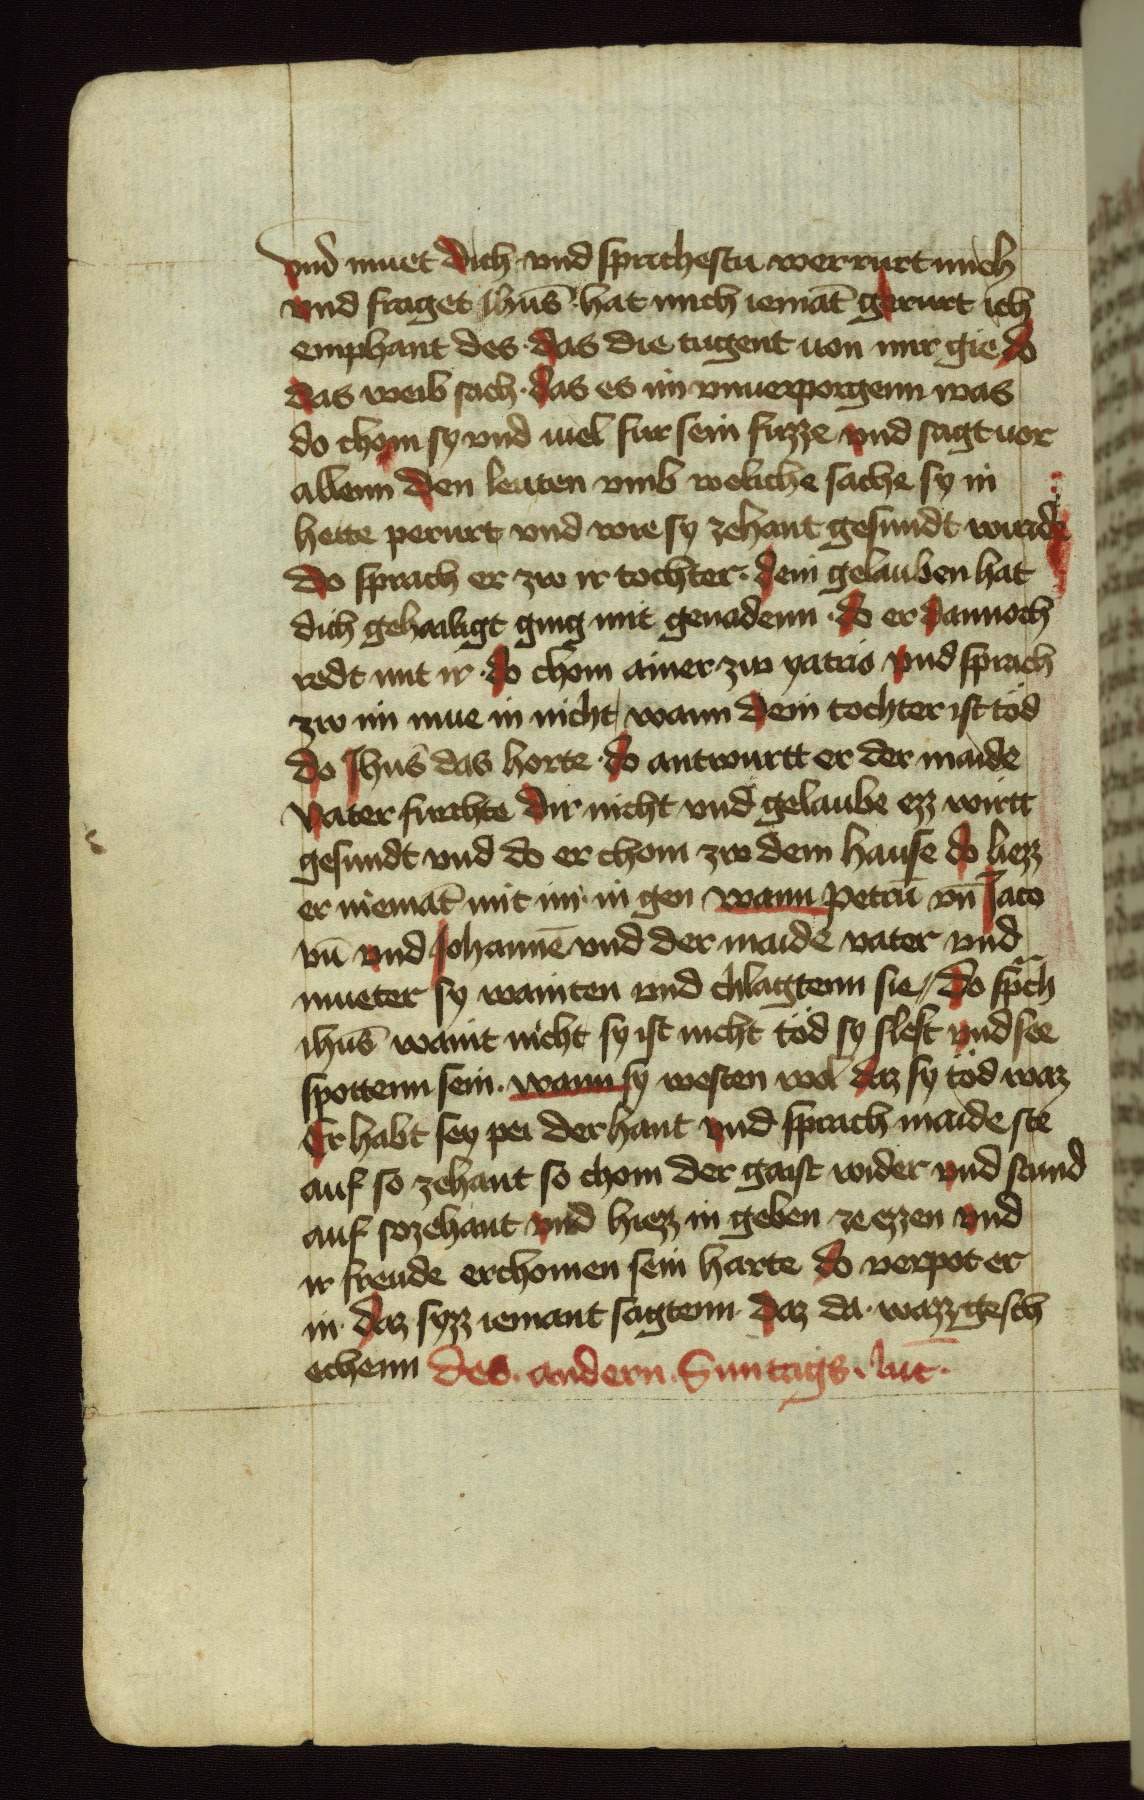 vnd muet dich vnd sprichestu wer rurt mich
vnd fraget Jhūs hat mich iemāt gerurt ich
emphant des das die tugent uon mir gie do
das weib sach das es im vnuerporgenn was
do chom sy vnd viel fur sein fuzze vnd sagt uor
allenn den leuten vmb weliche sache sy in
hette perurt vnd wie sy zehant gesundt wurde
do sprach er zw ir tochter dein gelauben hat
dich gehailigt ging mit genadenn do er dannoch
redt mit ir do chom ainer zw yatris vnd sprach
zw im mue in nicht wann dein tochter ist töd
do Jhūs das horte do antwurtt er der maide
vater furchte dir nicht vnd gelaube ezz wirtt
gesundt vnd do er chom zw dem hause do liezz
er niemāt mit im in gen wann Petrū vn̄ Jaco
vū vnd Johannē vnd der maide vater vnd
mueter sy wainten vnd chlagtenn sie / do spͣch
ihūs waint nicht sy ist nicht töd sy sleft vnd see
spottenn sein. wann sy westen wol daz sy töd waz
Er habt sey pei der hant vnd sprach maide ste
auf so zehant so chom der gaist wider vnd stund
auf so zehant vnd hiezz in geben ze ezzen vnd
ir freude erchomen sein harte do verpot er
in daz syzz iemant sagtenn daz da wazz gesch
echenn des. andern. Suntags. luc̄.